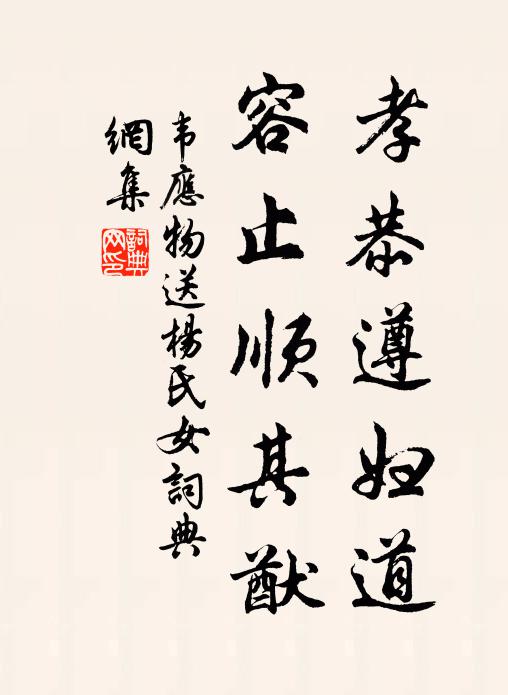 孝恭遵妇道
容止順其猷
韦應物送楊氏女詞典
網集
詞典
网印